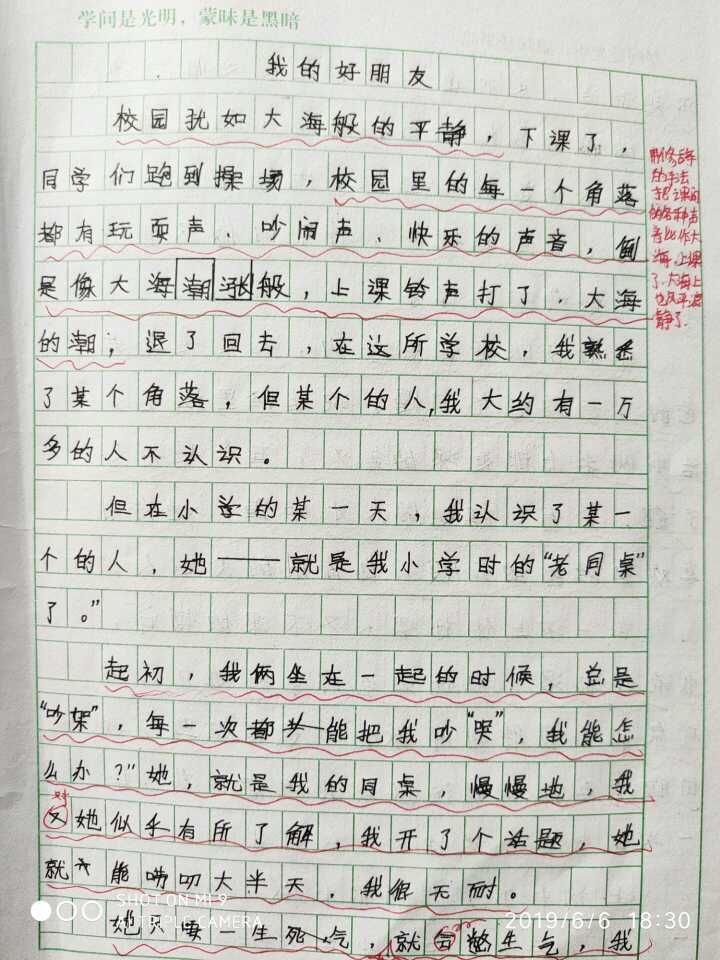 学问是光明，蒙昧是黑暗
我的好朋友
校园犹如大海般的平静，下课了，
同学们跑到操场，校园里的每一个角落
都有玩耍声、吵闹声、快乐的声音，倒
是像大海潮涨般，上课铃声打了，大海
的潮，退了回去，在这所学校，我熟悉
了某个角落，但某个的人，我大约有一万
多的人不认识。
但在小学的某一天，我认识了某一
个的人，她——就是我小学时的“老同桌”
了。”
起初，我俩坐在一起的时候，总是
“吵架”，每一次都能把我吵“哭”，我能怎
么办？”她，就是我的同桌，慢慢地，我
对
又她似乎有所了解，我开了个话题，她
就能唠叨大半天，我很无耐。
她只要一生死气，就句憋生气，我
用修辞
的手法
把课间
的各种声
音比作大
海，上课
了，大海上
也风平浪
静了.
SHOT ON MI 9
TRIPLE CAMERA
2019/6/6 18:30